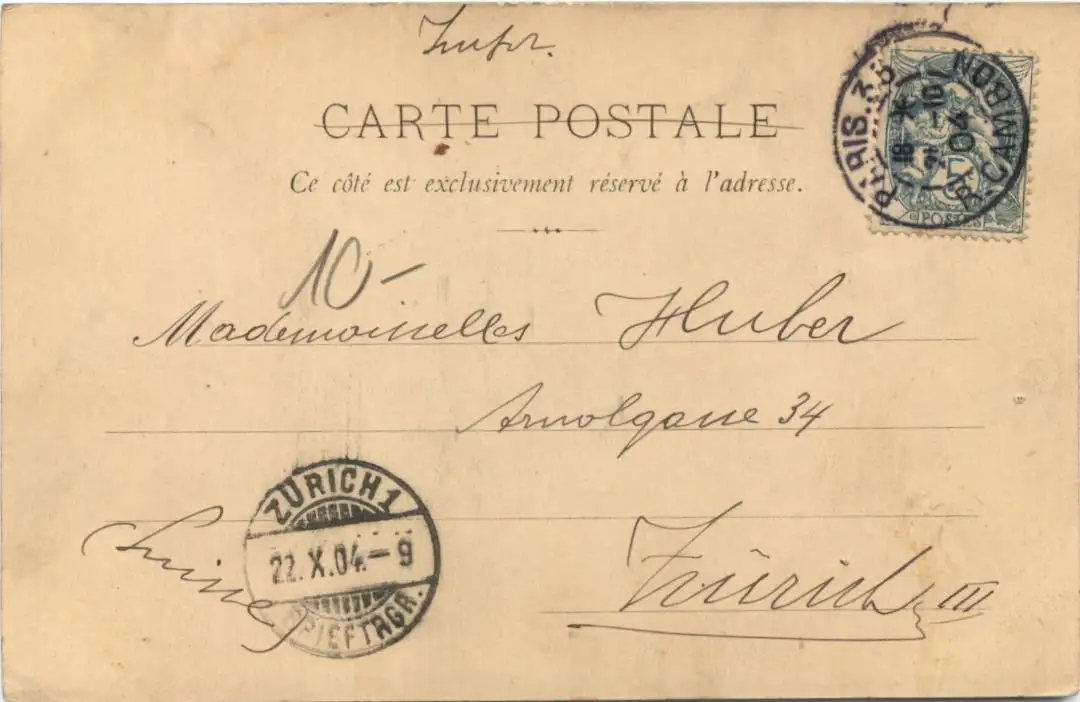 Impr.
CARTE POSTALE
Ce côté est exclusivement réservé à l'adresse.
PARIS. 38
R. CAMBON
18 -10
04
5
POSTES
10-
Mademoiselles Huber
Arnolgasse 34
Zürich III
Suisse
ZÜRICH 1
22.X.04.-9
BRIEFTRGR.